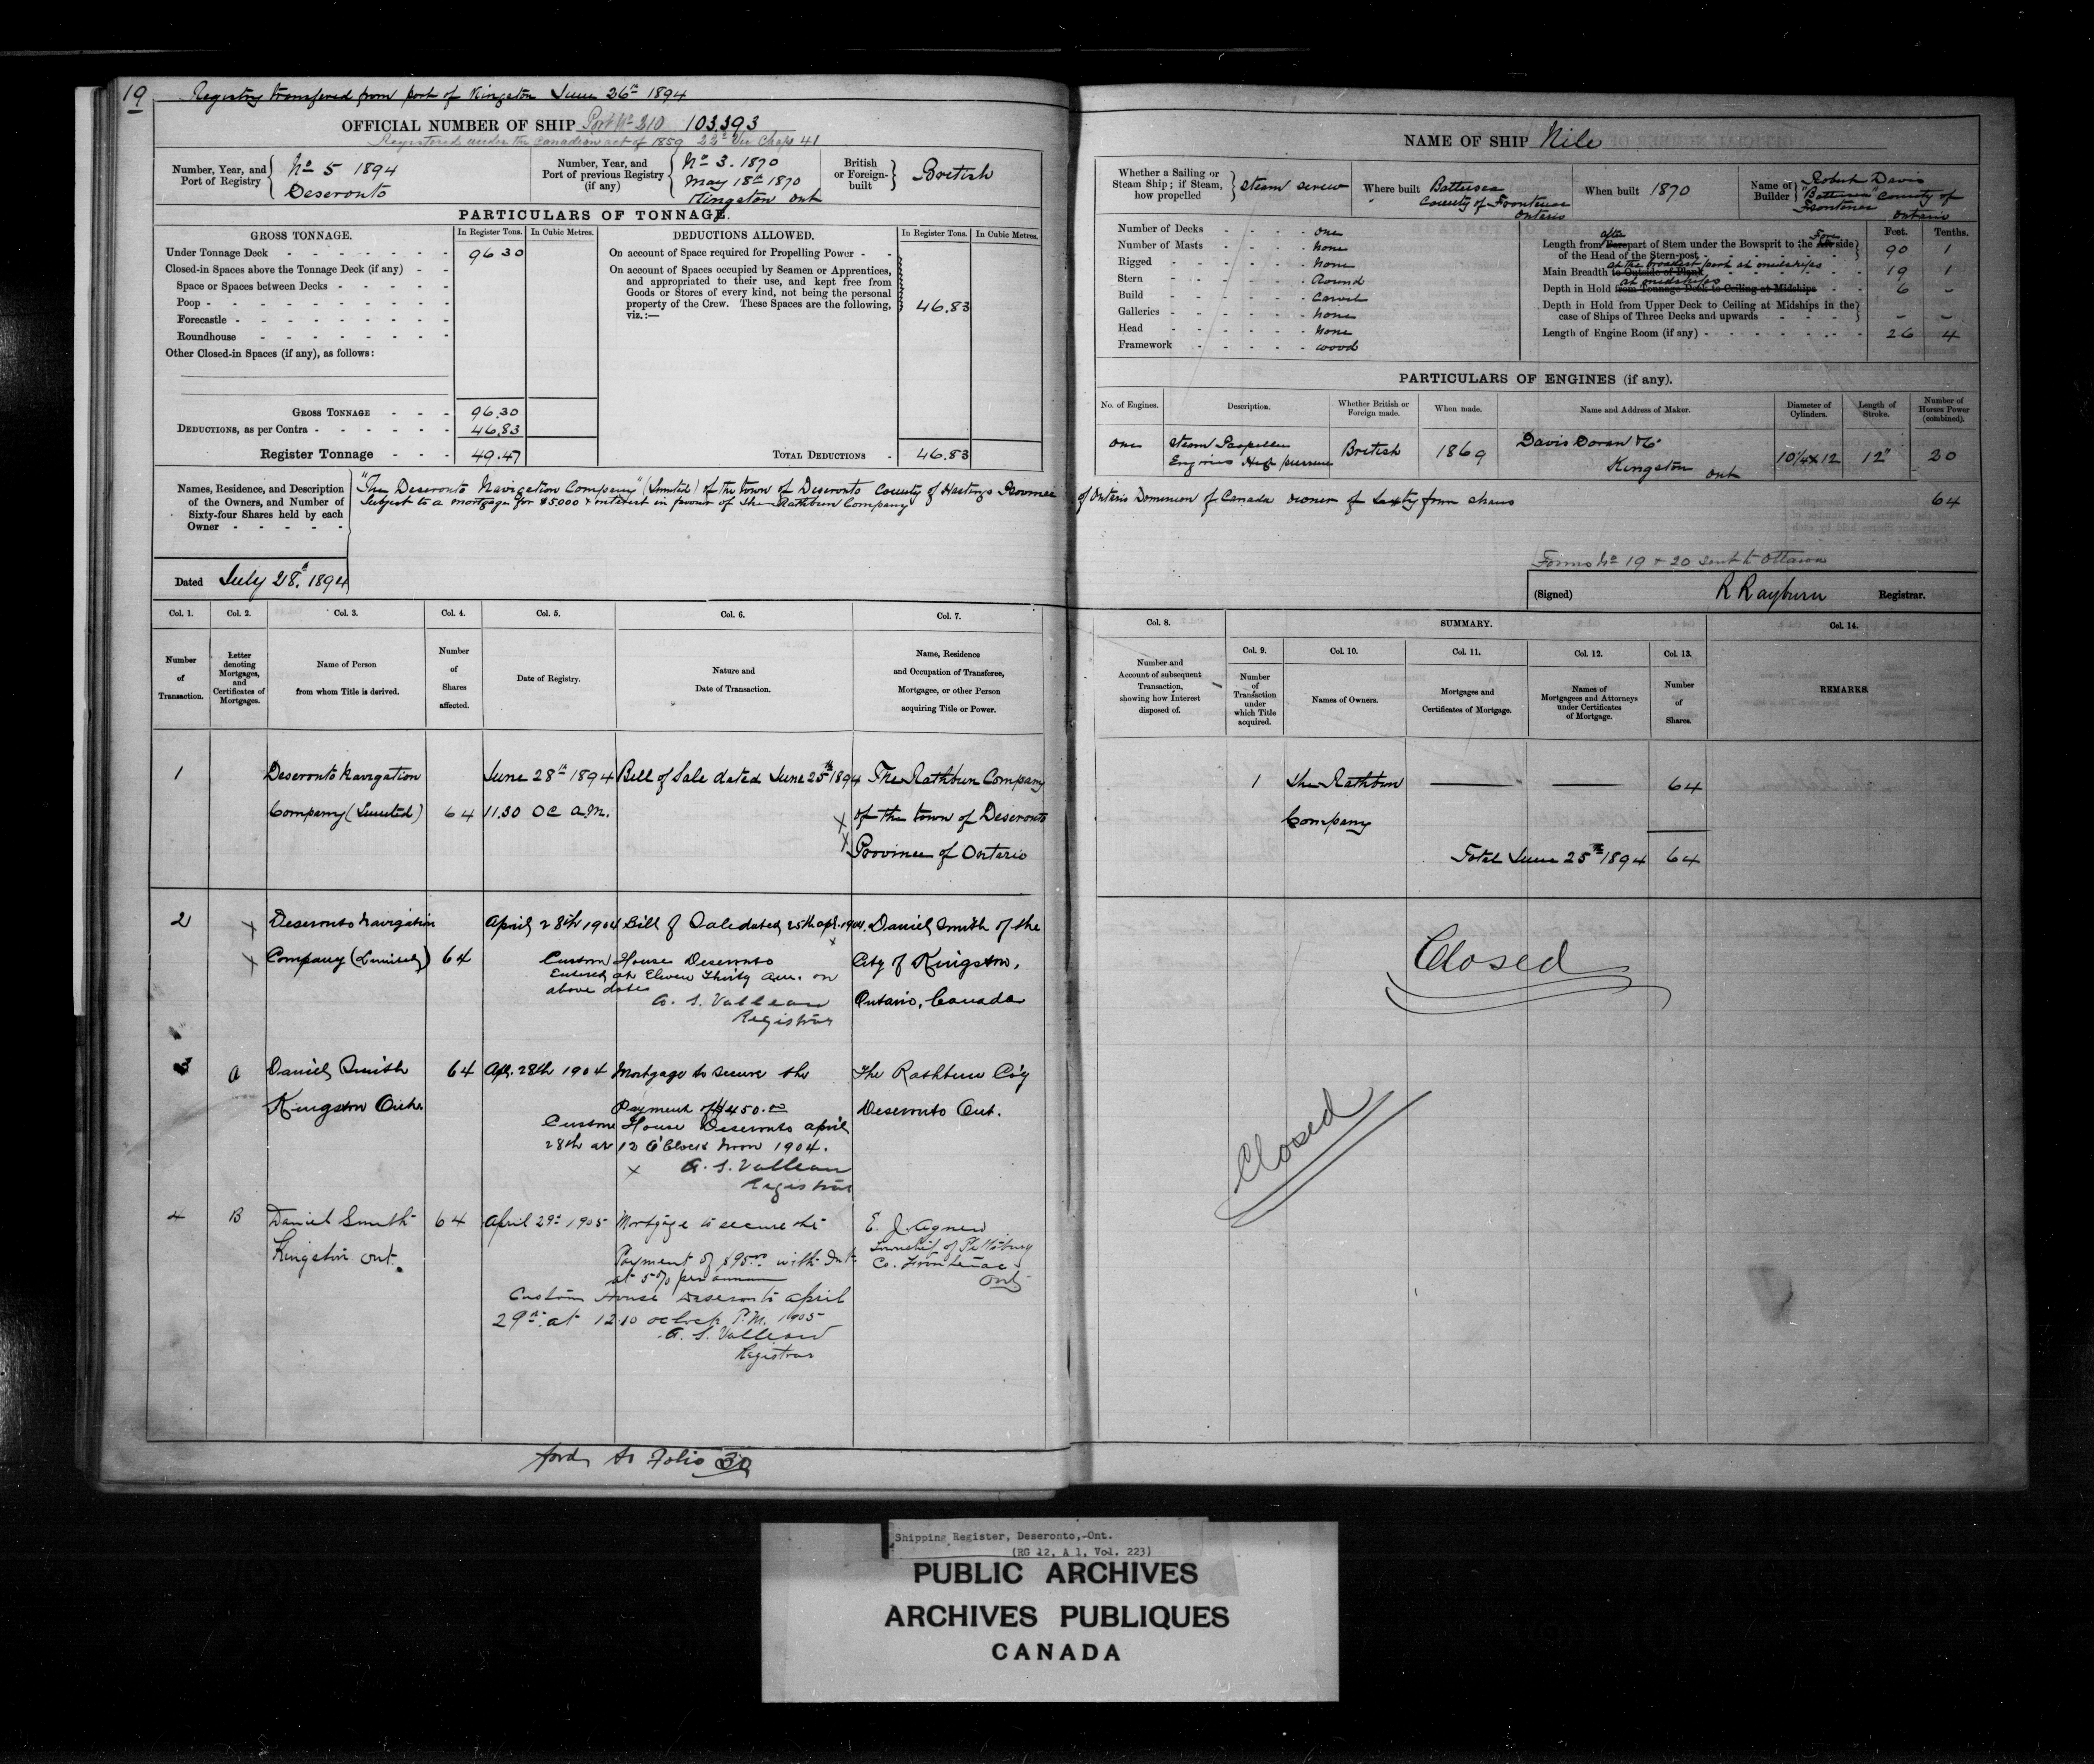 19 Registry transfered from port of Kingston June 26th 1894
OFFICIAL NUMBER OF SHIP Port No 210 103393
Registered under the Canadian act of 1859 22d Vic Chap 41
Number, Year, and Port of Registry No 5 1894 Deseronto
Number, Year, and Port of previous Registry (if any) No 3. 1870 May 18th 1870 Kingston ont
British or Foreign-built British
PARTICULARS OF TONNAGE.
GROSS TONNAGE. In Register Tons. In Cubic Metres. DEDUCTIONS ALLOWED. In Register Tons. In Cubic Metres.
Under Tonnage Deck 96 30
Closed-in Spaces above the Tonnage Deck (if any)
Space or Spaces between Decks
Poop
Forecastle
Roundhouse
Other Closed-in Spaces (if any), as follows:
On account of Space required for Propelling Power
On account of Spaces occupied by Seamen or Apprentices,
and appropriated to their use, and kept free from
Goods or Stores of every kind, not being the personal
property of the Crew. These Spaces are the following,
viz.:—
46.83
GROSS TONNAGE 96.30
DEDUCTIONS, as per Contra 46.83
Register Tonnage 49.47
TOTAL DEDUCTIONS 46.83
Names, Residence, and Description
of the Owners, and Number of
Sixty-four Shares held by each
Owner
"The Deseronto Navigation Company" (Limited) of the town of Deseronto County of Hastings Province of Ontario Dominion of Canada owner of Sixty four shares 64
Subject to a mortgage for $5.000 & interest in favour of The Rathbun Company
Dated July 28th 1894
NAME OF SHIP Nile
Whether a Sailing or Steam Ship; if Steam, how propelled Steam screw
Where built Battersea County of Frontenac Ontario
When built 1870
Name of Builder Robert Davis "Battersea" County of Frontenac Ontario
Number of Decks one
Number of Masts none
Rigged none
Stern Round
Build Carvel
Galleries none
Head none
Framework wood
Feet. Tenths.
Length from Fore after part of Stem under the Bowsprit to the Aft Fore side
of the Head of the Stern-post 90 1
Main Breadth to Outside of Plank at the broadest part at midships 19 1
Depth in Hold from Tonnage Deck to Ceiling at Midships at midships 6 –
Depth in Hold from Upper Deck to Ceiling at Midships in the
case of Ships of Three Decks and upwards – –
Length of Engine Room (if any) 26 4
PARTICULARS OF ENGINES (if any).
No. of Engines. Description. Whether British or Foreign made. When made. Name and Address of Maker. Diameter of Cylinders. Length of Stroke. Number of Horses Power (combined).
one Steam Propeller Engines High pressure British 1869 Davis Doran & Co Kingston ont 10¼x12 12" 20
Forms No 19 & 20 sent to Ottawa
(Signed) R Rayburn Registrar.
Col. 1. Col. 2. Col. 3. Col. 4. Col. 5. Col. 6. Col. 7.
Number of Transaction.
Letter denoting Mortgages, and Certificates of Mortgages.
Name of Person from whom Title is derived.
Number of Shares affected.
Date of Registry.
Nature and Date of Transaction.
Name, Residence and Occupation of Transferee, Mortgagee, or other Person acquiring Title or Power.
Col. 8. SUMMARY. Col. 14.
Col. 9. Col. 10. Col. 11. Col. 12. Col. 13.
Number and Account of subsequent Transaction, showing how Interest disposed of.
Number of Transaction under which Title acquired.
Names of Owners.
Mortgages and Certificates of Mortgage.
Names of Mortgagees and Attorneys under Certificates of Mortgage.
Number of Shares.
REMARKS.
1 Deseronto Navigation June 28th 1894 Bill of Sale dated June 25th 1894 The Rathbun Company
Company (Limited) 64 11.30 OC a.m. of the town of Deseronto
Province of Ontario
1 The Rathbun Company 64
Total June 25th 1894 64
2 Deseronto Navigation April 28th 1904 Bill of Sale dated 25th apl. 1904. Daniel Smith of the
Company (Limited) 64 Custom House Deseronto City of Kingston,
Entered at Eleven Thirty a.m. on
above date Ontario, Canada
A. S. Valleau
Registrar
Closed
3 A Daniel Smith 64 Apl. 28th 1904 Mortgage to secure the The Rathbun Co'y
Kingston Ont. Payment of $450.00 Deseronto Ont.
Custom House Deseronto april
28th at 12 O'Clock Noon 1904.
A. S. Valleau
Registrar
Closed
4 B Daniel Smith 64 April 29th 1905 Mortgage to secure the E. J. Agnew
Kingston ont. Payment of $95.00 with Int Township of Pittsburg
at 5% per annum Co. Frontenac
Ont
Custom House Deseronto april
29th at 12.10 oclock P.M. 1905
A. S. Valleau
Registrar
ford to Folio 30
Shipping Register, Deseronto, Ont.
(RG 12, A 1, Vol. 223)
PUBLIC ARCHIVES
ARCHIVES PUBLIQUES
CANADA